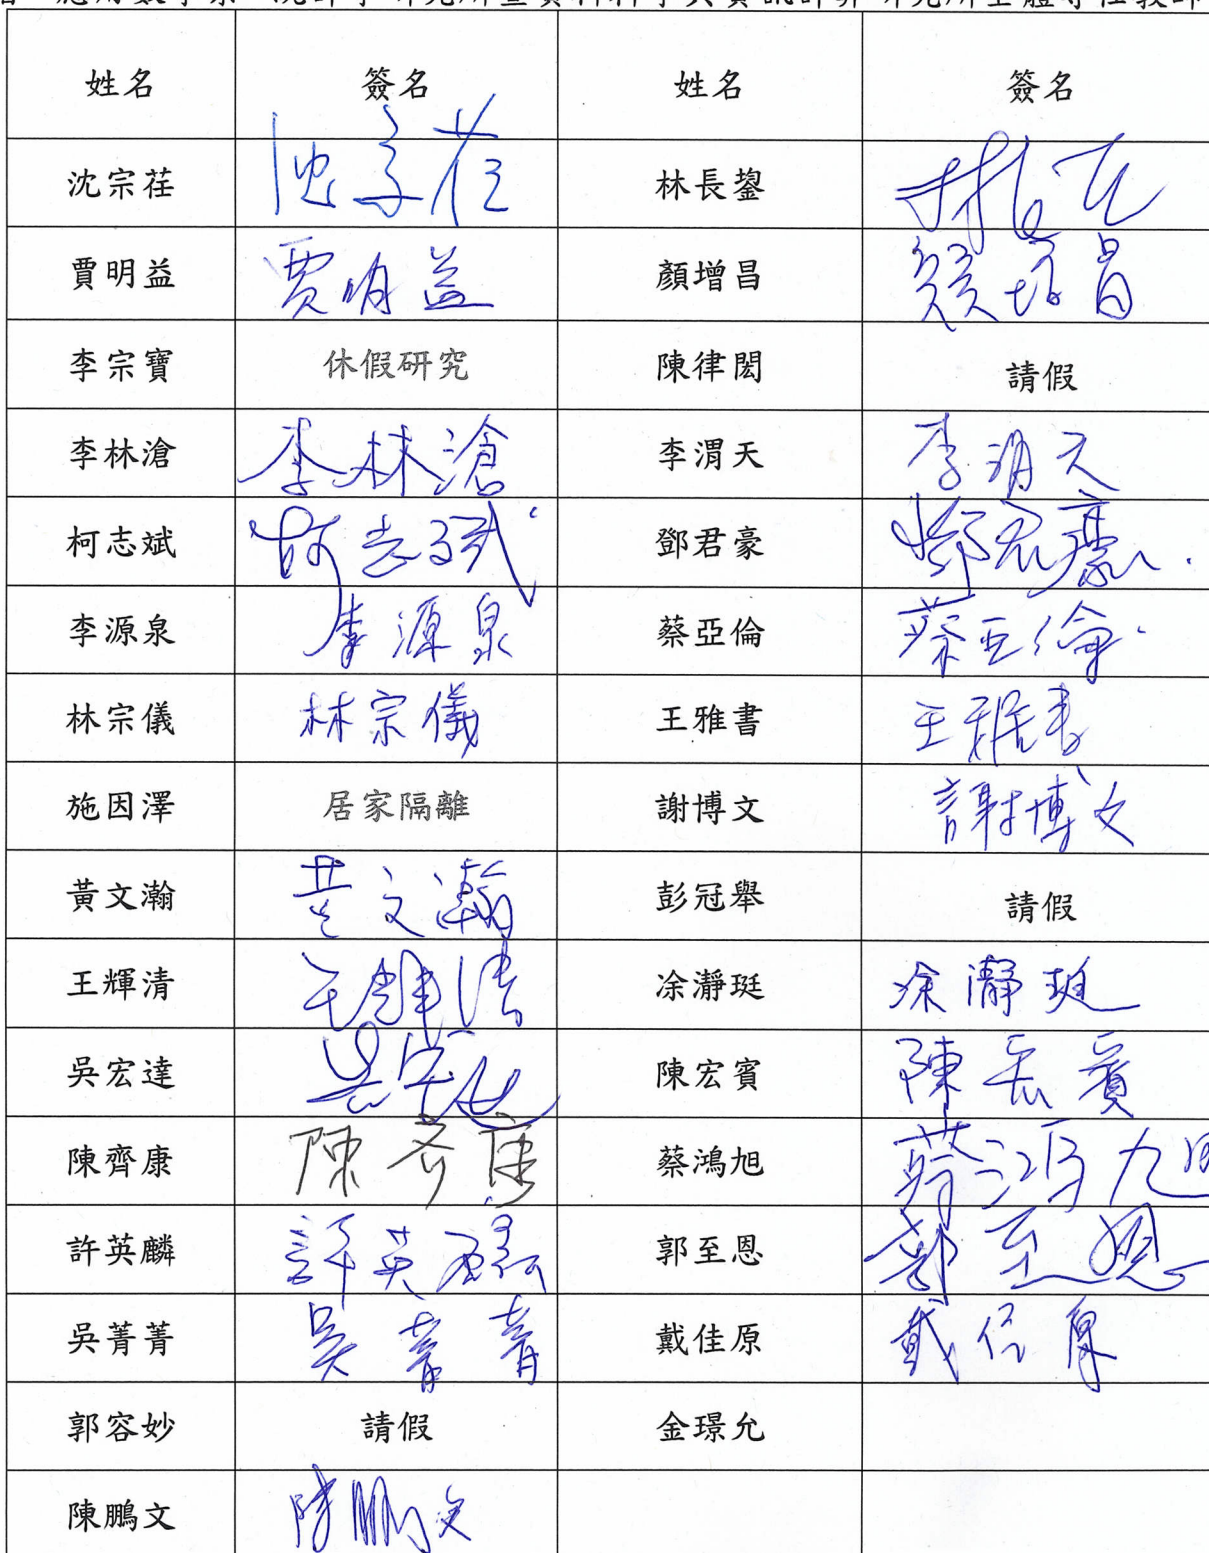 應用數學系 統計學研究所暨資料科學與資訊計算研究所全體專任教師
姓名 簽名 姓名 簽名
沈宗荏 沈宗荏 林長鋆
賈明益 賈明益 顏增昌 顏增昌
李宗寶 休假研究 陳律閎 請假
李林滄 李林滄 李渭天 李渭天
柯志斌 柯志斌 鄧君豪 鄧君豪
李源泉 李源泉 蔡亞倫 蔡亞倫
林宗儀 林宗儀 王雅書 王雅書
施因澤 居家隔離 謝博文 謝博文
黃文瀚 黃文瀚 彭冠舉 請假
王輝清 王輝清 凃瀞珽 凃瀞珽
吳宏達 吳宏達 陳宏賓 陳宏賓
陳齊康 陳齊康 蔡鴻旭 蔡鴻旭
許英麟 許英麟 郭至恩 郭至恩
吳菁菁 吳菁菁 戴佳原 戴佳原
郭容妙 請假 金璟允
陳鵬文 陳鵬文